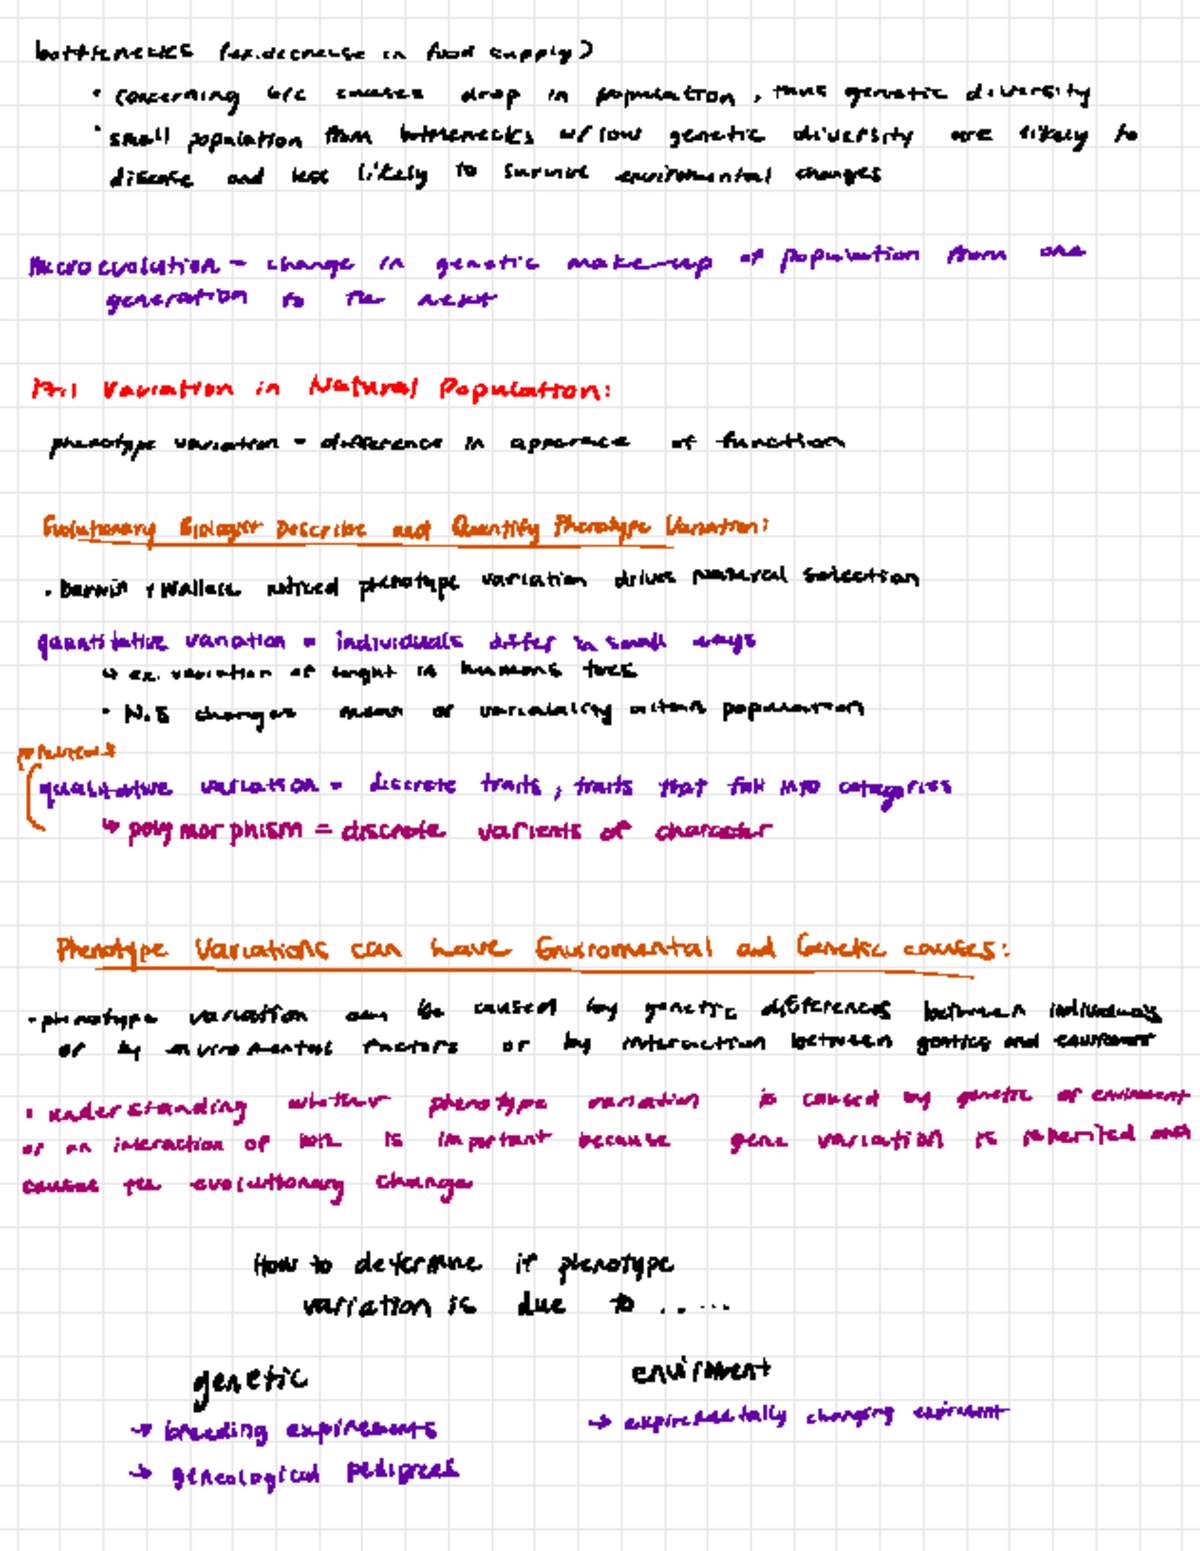 bottlenecks (ex. decrease in food supply)
• concerning b/c causes drop in population, thus genetic diversity
• small population from bottlenecks w/ low genetic diversity are likely to
disease and less likely to survive enviromental changes
Microevolution - change in genetic make-up of population from one
generation to the next
17.1 Variation in Natural Population:
phenotype variation - difference in apperance of function
Evolutionary Biologist Describe and Quantify Phenotype Variation:
• Darwin + Wallace noticed phenotype variation drives natural selection
quantitative variation = individuals differ in small ways
↳ ex. variation of in humans toes
• N.S changes mean or variability within population
qualitative variation = discrete traits, traits that fall into categories
↳ polymorphism = discrete varients of character
Phenotype Variations can have Enviromental and Genetic causes:
- phenotype variation can be caused by genetic differences between individuals
or by enviromental factors or by interaction between and
• understanding whether phenotype variation is caused by genetic or enviroment
or an interaction of both is important because gene variation is inherited and
causes the evolutionary change
How to determine if phenotype
variation is due to .....
genetic
enviroment
→ breeding expirements
→ expirementally changing
→ geneological pedigrees